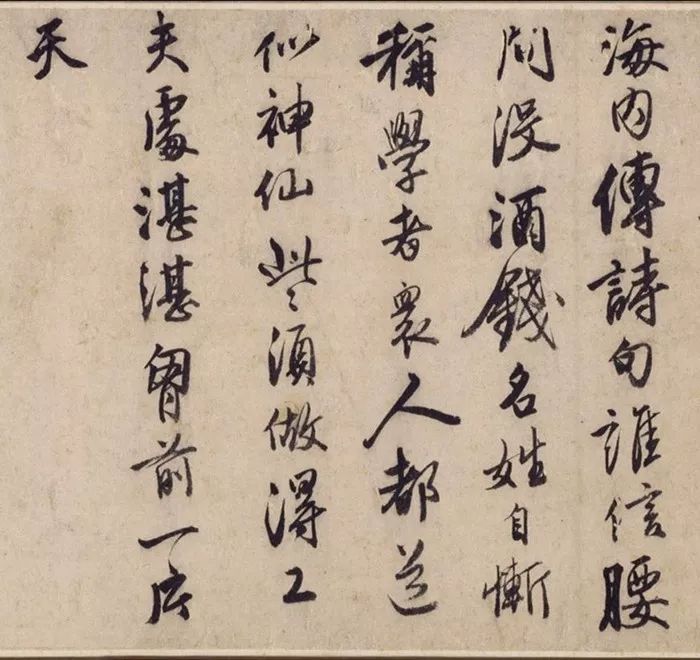 海内傳詩句誰信腰
间没酒錢名姓自慚
稱學者衆人都道
似神仙些須做得工
夫處湛湛胷前一片
天